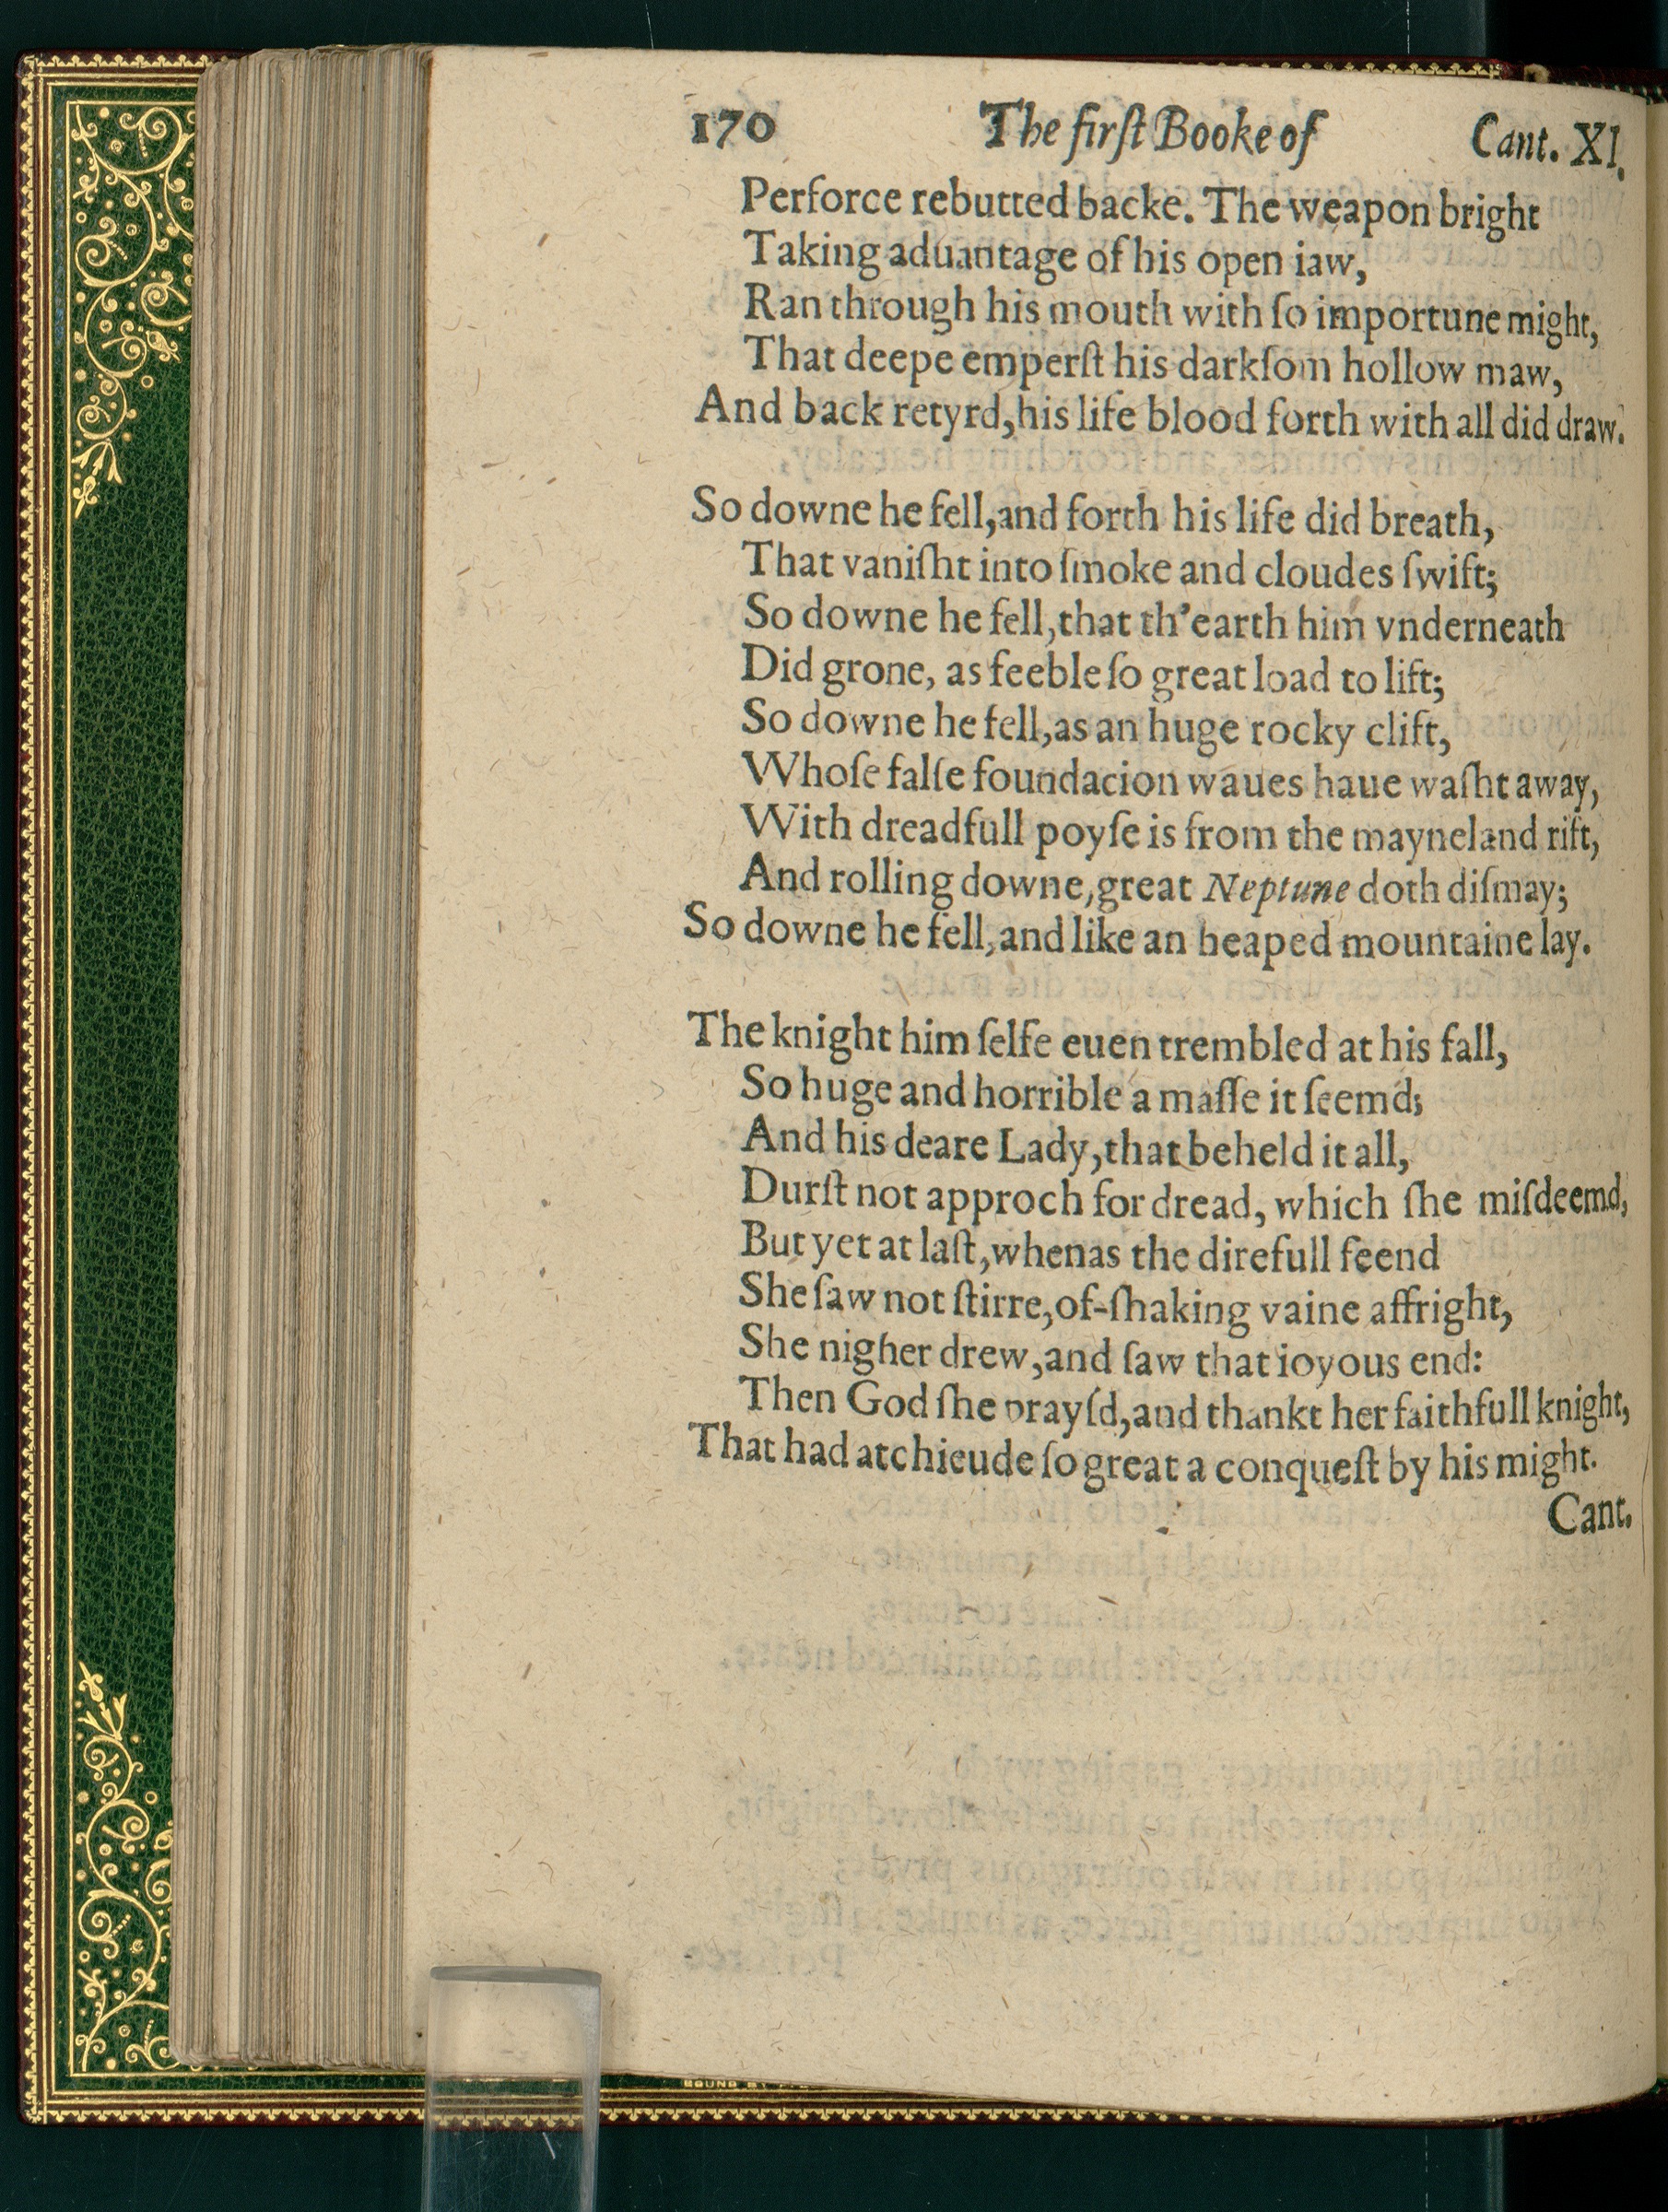 170 The firſt Booke of Cant. XI.
Perforce rebutted backe. The weapon bright
Taking aduantage of his open iaw,
Ran through his mouth with ſo importune might,
That deepe emperſt his darkſom hollow maw,
And back retyrd,his life blood forth with all did draw.
So downe he fell,and forth his life did breath,
That vaniſht into ſmoke and cloudes ſwift;
So downe he fell,that th'earth him vnderneath
Did grone, as feeble ſo great load to lift;
So downe he fell,as an huge rocky clift,
Whoſe falſe foundacion waues haue waſht away,
With dreadfull poyſe is from the mayneland rift,
And rolling downe,great Neptune doth diſmay;
So downe he fell,and like an heaped mountaine lay.
The knight him ſelfe euen trembled at his fall,
So huge and horrible a maſſe it ſeemd;
And his deare Lady,that beheld it all,
Durſt not approch for dread, which ſhe miſdeemd,
But yet at laſt,whenas the direfull feend
She ſaw not ſtirre,of-ſhaking vaine affright,
She nigher drew,and ſaw that ioyous end:
Then God ſhe prayſd,and thankt her faithfull knight,
That had atchieude ſo great a conqueſt by his might.
Cant.
BOUND BY